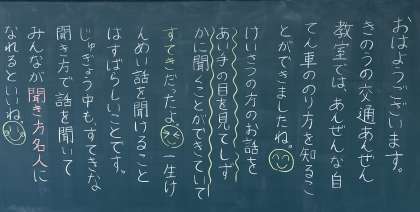 おはようございます。
きのうの交通あんぜん
教室では、あんぜんな自
てん車ののり方を知るこ
とができましたね。
けいさつの方のお話を
あい手の目を見てしず
かに聞くことができていて
すてきだったよ。一生け
んめい話を聞けること
はすばらしいことです。
じゅぎょう中も、すてきな
聞き方で話を聞いて
みんなが聞き方名人に
なれるといいね。